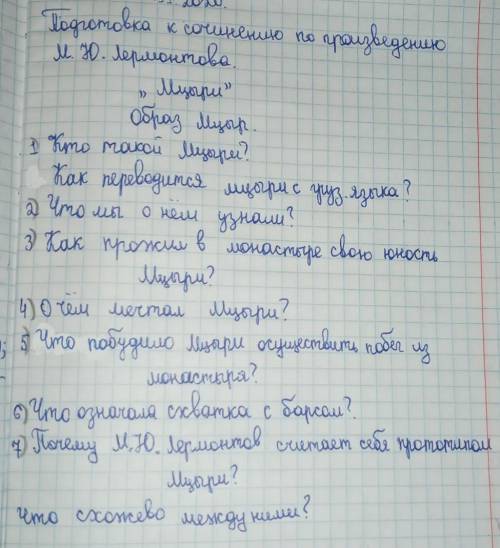 2020.
Подготовка к сочинению по произведению
М. Ю. Лермонтова.
„Мцыри”
Образ Мцыр.
1) Кто такой Мцыри?
Как переводится мцыри с груз. языка?
2) Что мы о нём узнали?
3) Как прожил в монастыре свою юность
Мцыри?
4) О чём мечтал Мцыри?
5) Что побудило Мцыри осуществить побег из
монастыря?
6) Что означала схватка с барсом?
7) Почему М. Ю. Лермонтов считает себя прототипом
Мцыри?
Что схожево между ними?